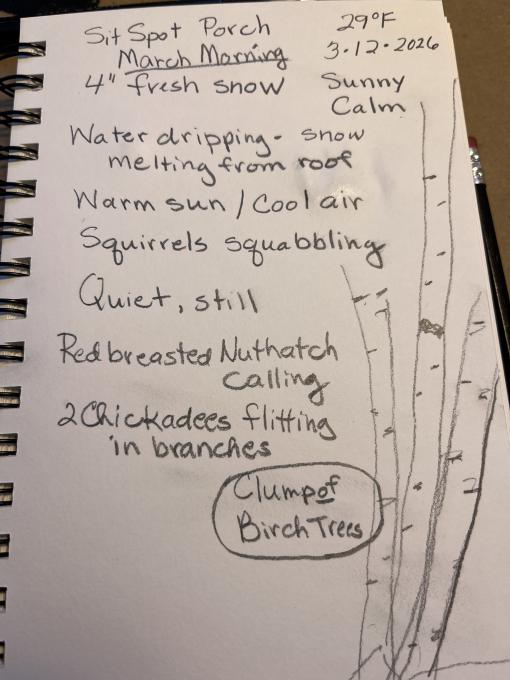 Sit Spot Porch 29°F
March Morning 3.12.2026
4" fresh snow Sunny
Calm
Water dripping - snow
melting from roof
Warm sun / Cool air
Squirrels squabbling
Quiet, still
Red breasted Nuthatch
Calling
2 Chickadees flitting
in branches
Clump of
Birch Trees